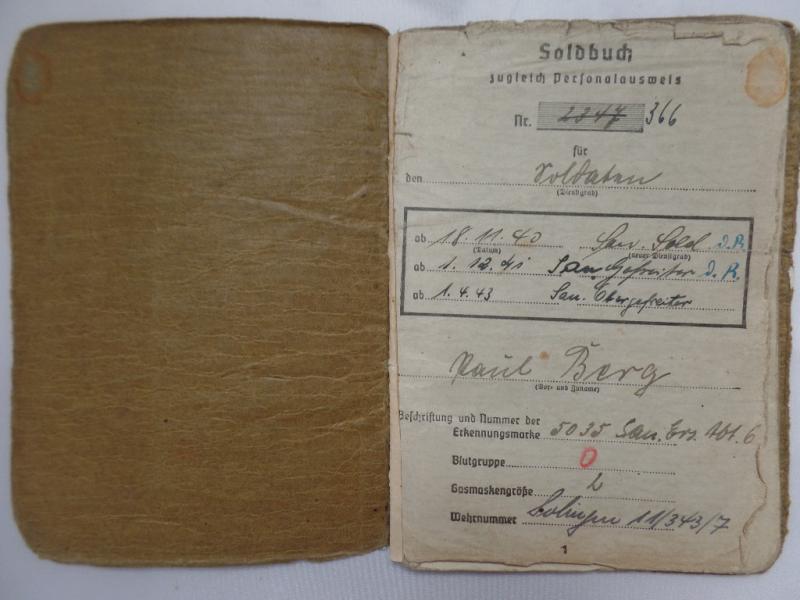 Soldbuch
zugleich Personalausweis
Nr. 2347 366
für
den Soldaten
(Dienstgrad)
ab 18.11.40 San. Sold d.R.
(Datum) (neuer Dienstgrad)
ab 1.12.41 San. Gefreiter d.R.
ab 1.4.43 San. Obergefreiter
Paul Berg
(Vor- und Zuname)
Beschriftung und Nummer der
Erkennungsmarke 5035 San. Ers. Abt. 6
Blutgruppe 0
Gasmaskengröße 2
Wehrnummer Solingen 11/343/7
1